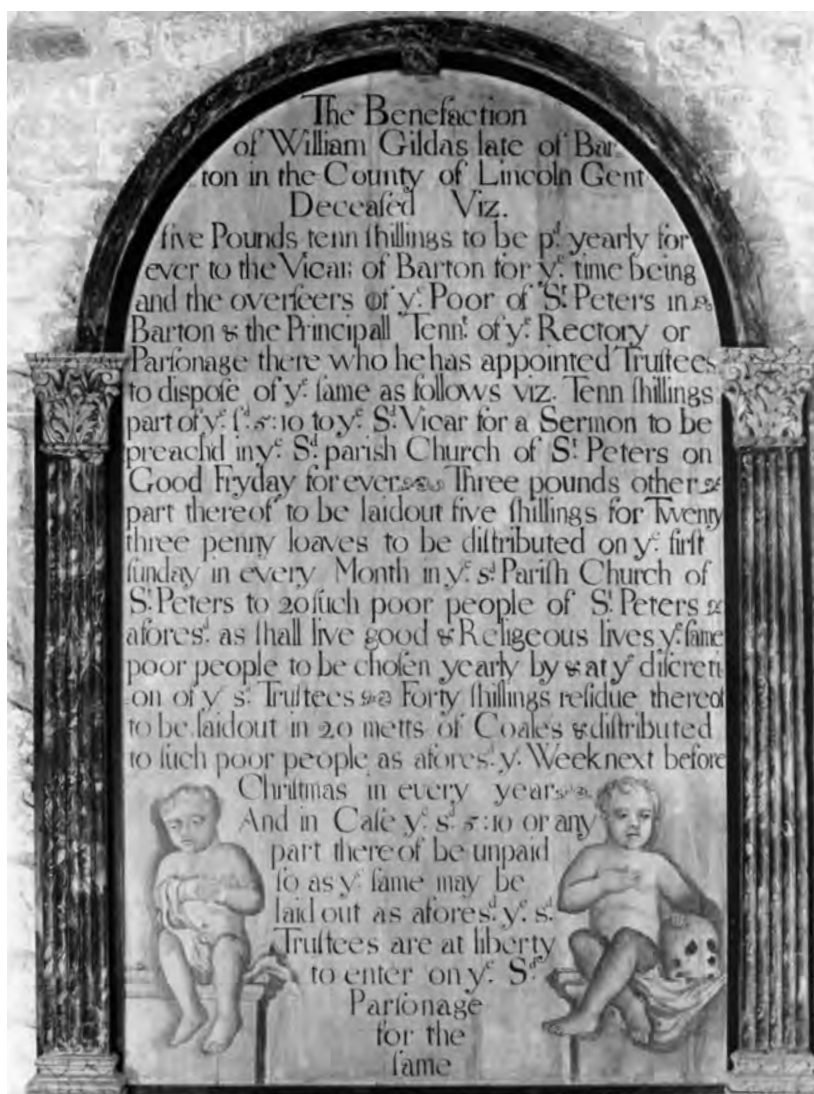 The Benefaction
of William Gildas late of Bar
ton in the County of Lincoln Gent
Deceaſed Viz.
five Pounds tenn ſhillings to be pd. yearly for
ever to the Vicar of Barton for ye. time being
and the overſeers of ye. Poor of St. Peters in
Barton & the Principall Tennt. of ye. Rectory or
Parſonage there who he has appointed Truſtees
to diſpoſe of ye. ſame as follows viz. Tenn ſhillings
part of ye. ſd. 5:10 to ye. Sd. Vicar for a Sermon to be
preachd in ye. Sd. pariſh Church of St. Peters on
Good Fryday for ever Three pounds other
part thereof to be laid out five ſhillings for Twenty
three penny loaves to be diſtributed on ye. firſt
ſunday in every Month in ye. sd. Pariſh Church of
St. Peters to 20 ſuch poor people of St. Peters
afoресd. as ſhall live good & Religeous lives ye. ſame
poor people to be choſen yearly by & at ye. diſcreti
on of ye sd. Truſtees Forty ſhillings reſidue thereof
to be laid out in 20 metts of Coales & diſtributed
to ſuch poor people as aforesd. ye. Week next before
Chriſtmas in every year
And in Caſe ye. sd. 5:10 or any
part thereof be unpaid
ſo as ye. ſame may be
laid out as aforesd. ye. sd.
Truſtees are at liberty
to enter on ye. Sd.
Parſonage
for the
ſame